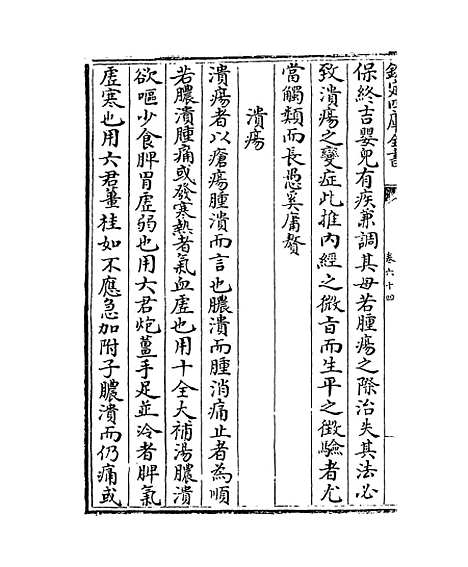 欽定四庫全書
卷六十四
保終吉嬰兒有疾兼調其母若腫瘍之際治失其法必
致潰瘍之變症此推内經之微旨而生平之徴驗者尤
當觸類而長慿奚庸贅
潰瘍
潰瘍者以瘡瘍腫潰而言也膿潰而腫消痛止者為順
若膿潰腫痛或發寒熱者氣血虚也用十全大補湯膿潰
欲嘔少食脾胃虚弱也用六君炮薑手足並冷者脾氣
虚寒也用六君薑桂如不應急加附子膿潰而仍痛或